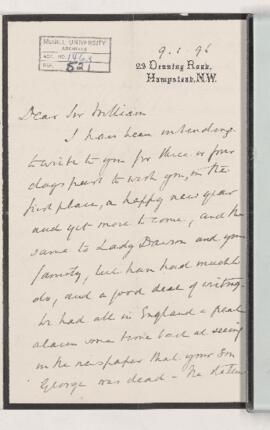 McGILL UNIVERSITY
ARCHIVES
ACC. NO. 1463
REF. 521
9.1.96
29 Denning Road,
Hampstead, N.W.
Dear Sir William
I have been intending
to write to you for three or four
days past to wish you, in the
first place, a happy new year
and yet more to come, and the
same to Lady Dawson and your
family, but have had much to
do, and a good deal of writing.
We had all in England a great
alarm some time back at seeing
in the newspaper that your Son
George was dead – the